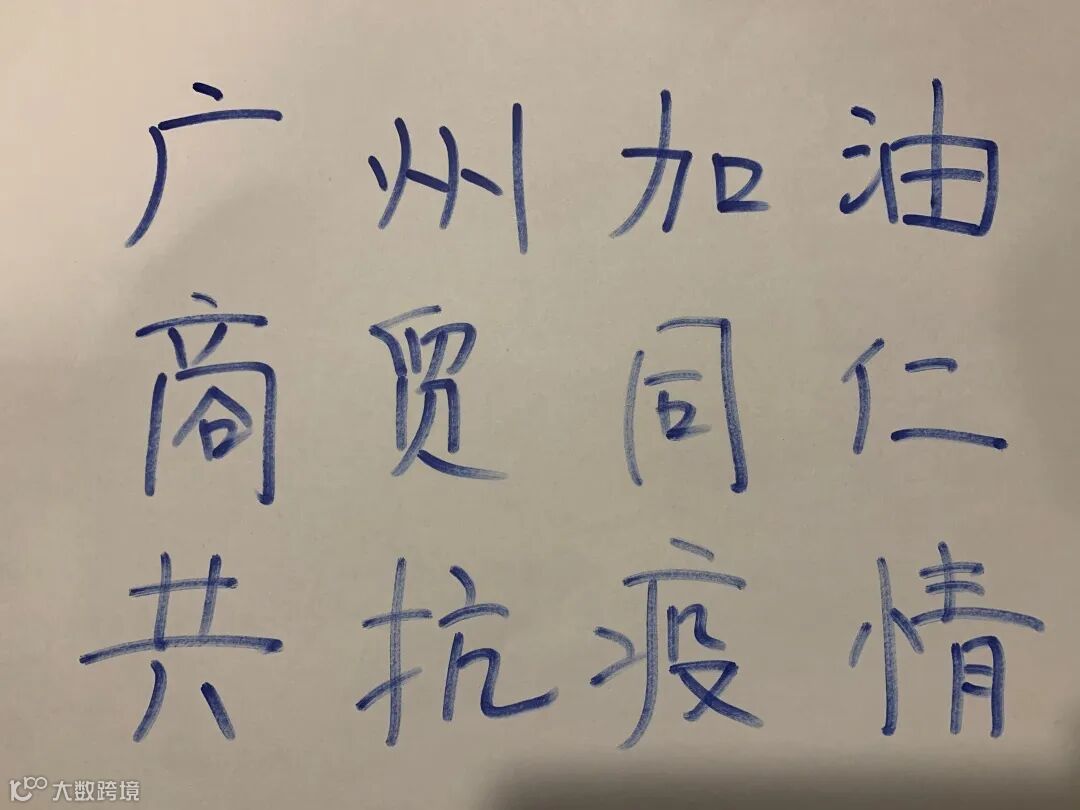 广州加油
商贸同仁
共抗疫情
大数跨境